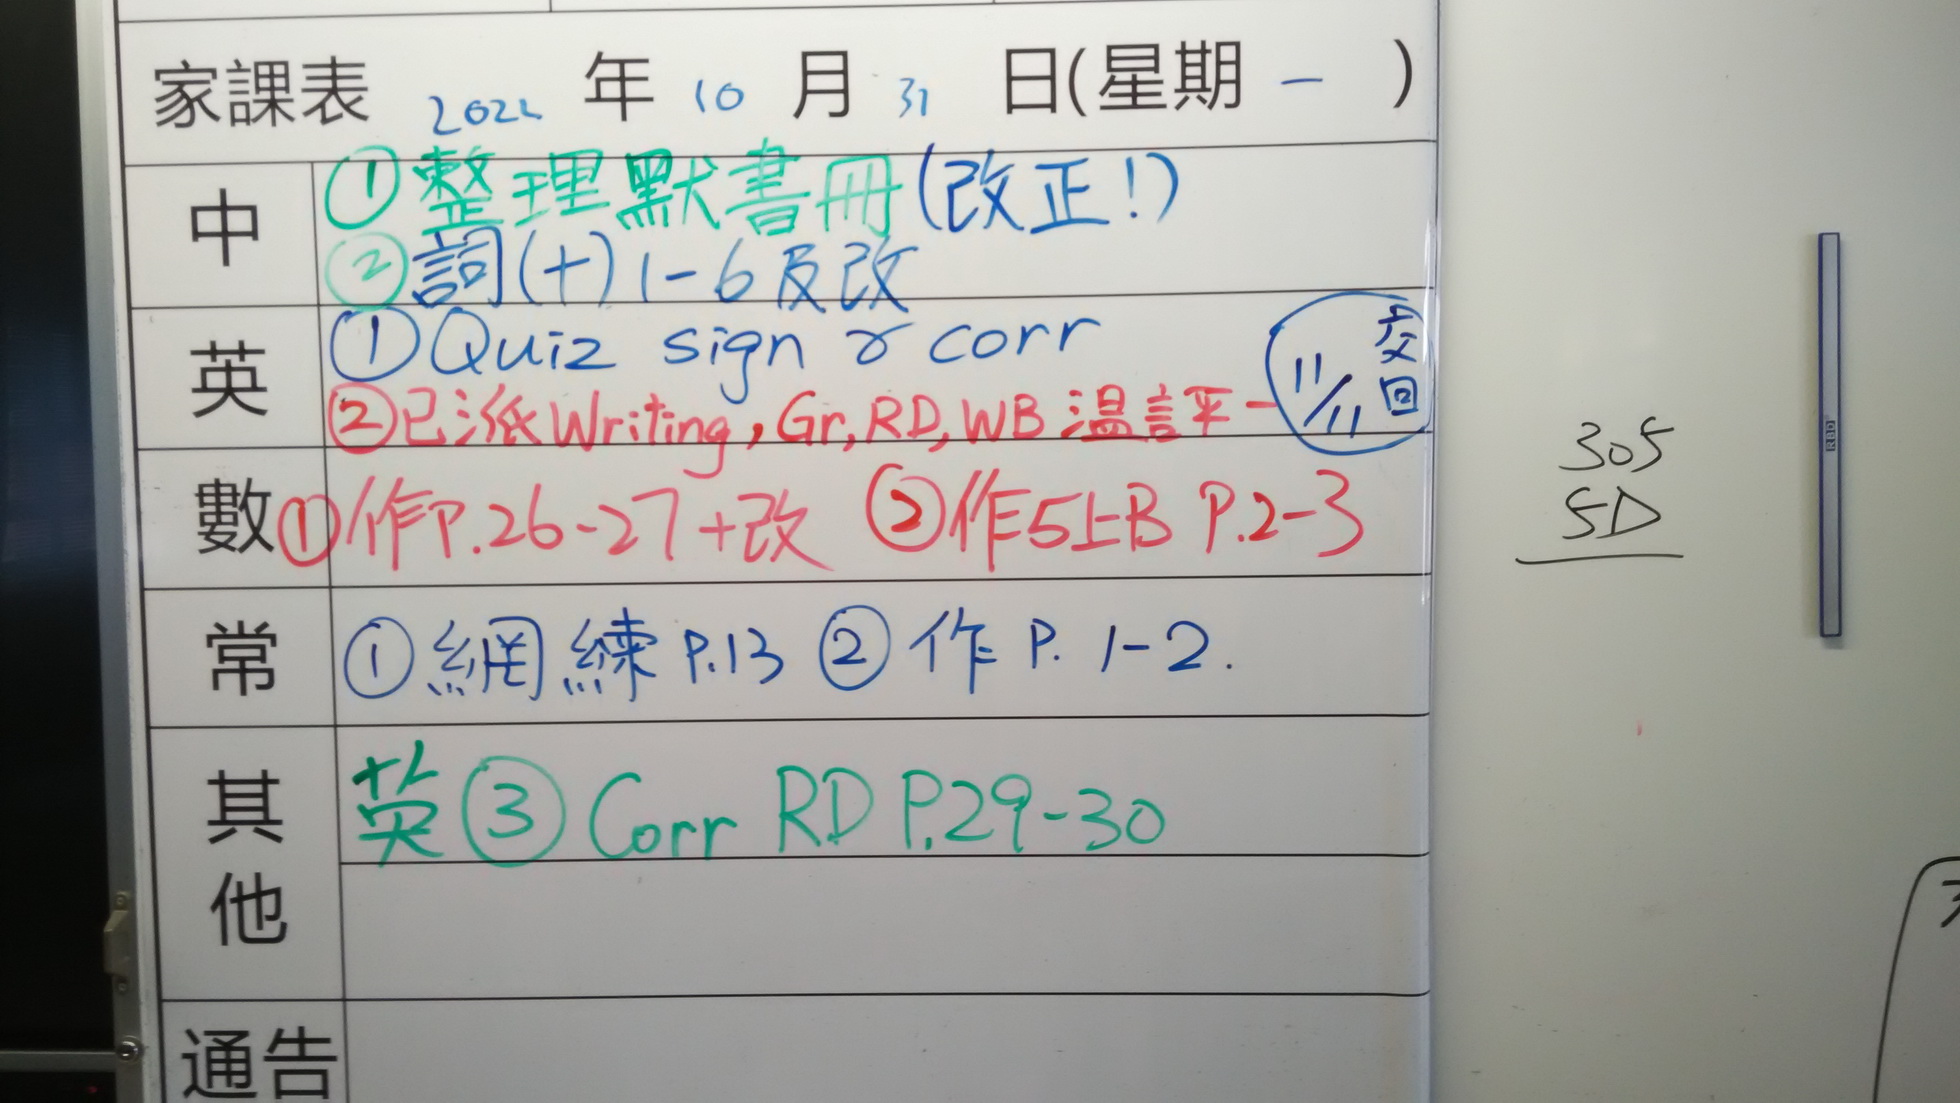 家課表 2022 年 10 月 31 日(星期 一 )
中 ①整理默書冊(改正!)
②詞(十)1-6及改
英 ①Quiz sign & corr
②已派Writing, Gr, RD, WB 溫評一 11/11 交回
數 ①作P.26-27+改 ②作5上B P.2-3
305
5D
常 ①網練 P.13 ②作 P. 1-2.
其他 英③ Corr RD P.29-30
通告